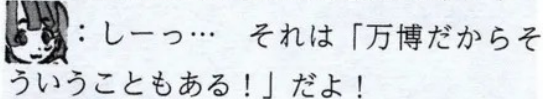 ：しーっ… それは「万博だからそ
ういうこともある！」だよ！